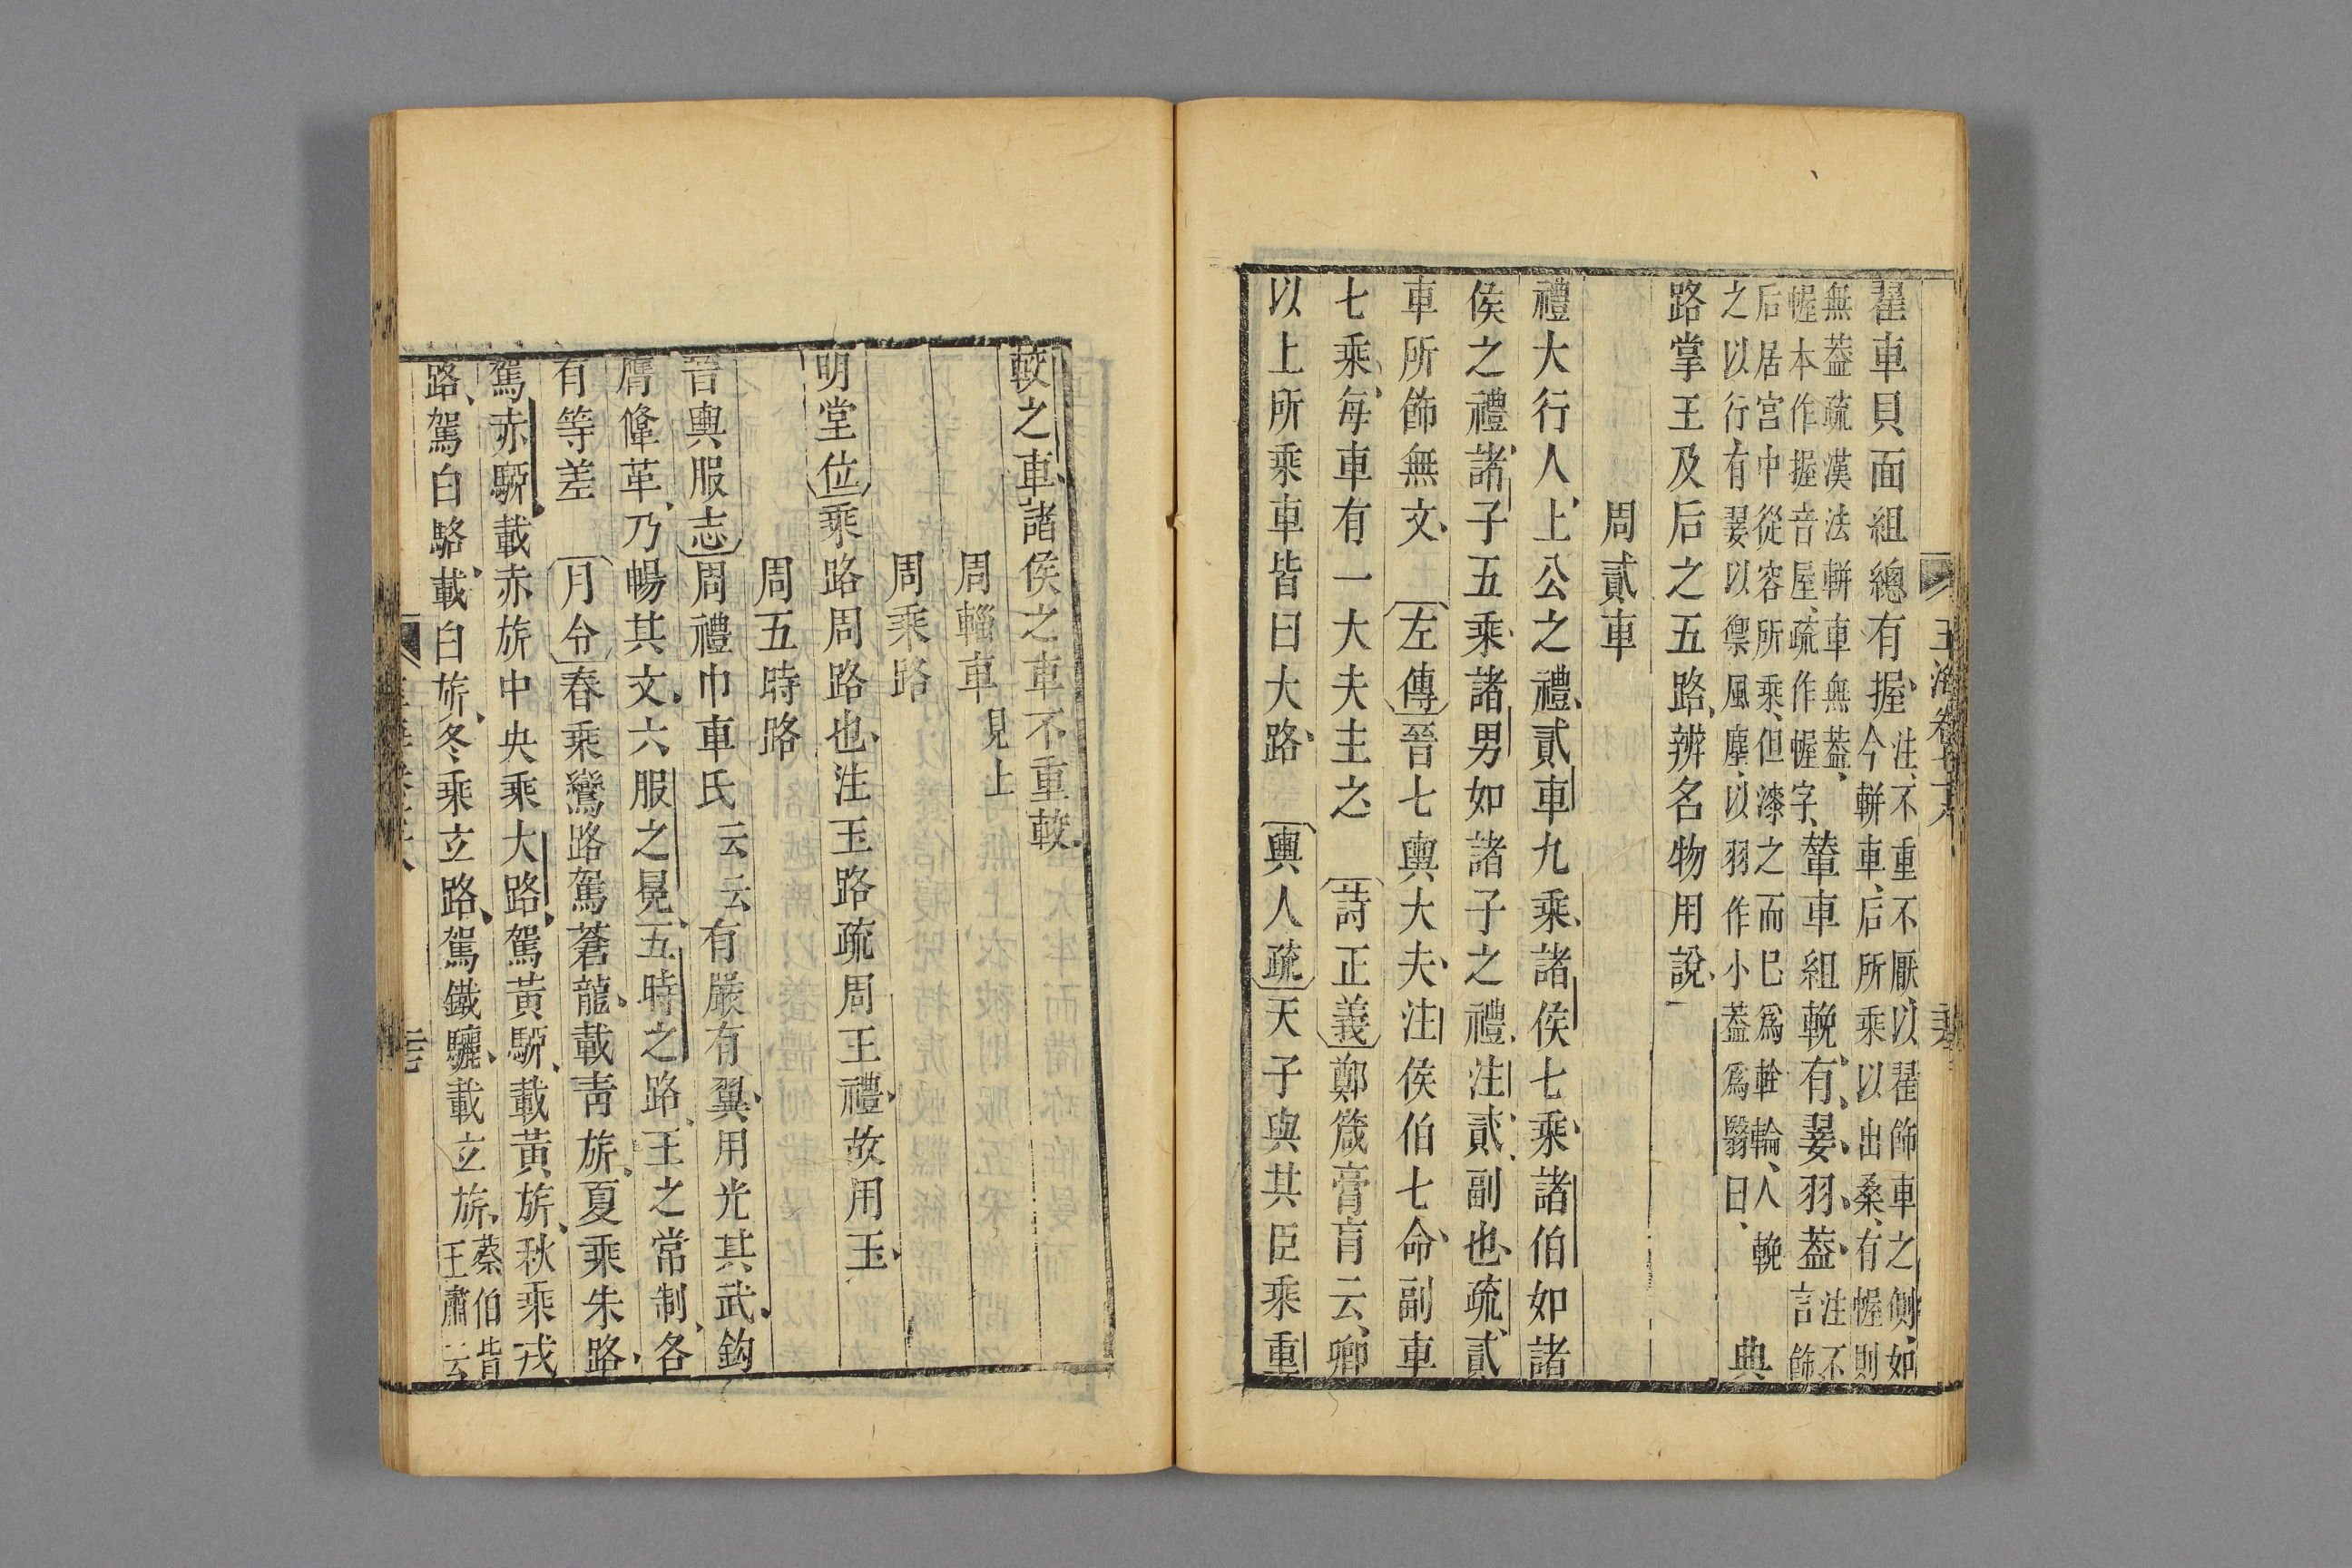 翟車貝面組總有握注不重不厭以翟飾車之側如
今輧車后所乘以出桑有幄則
無葢疏漢法輧車無葢
幄本作握音屋疏作幄字輦車組輓有翣羽葢注不
言飾
后居宫中從容所乘但漆之而巳爲輇輪人輓
之以行有翣以禦風塵以羽作小葢爲翳日典
路掌王及后之五路辨名物用說
周貳車
禮大行人上公之禮貳車九乘諸侯七乘諸伯如諸
侯之禮諸子五乘諸男如諸子之禮注貳副也疏貳
車所飾無文左傳晉七輿大夫注侯伯七命副車
七乘每車有一大夫主之詩正義鄭箴膏肓云卿
以上所乘車皆曰大路輿人疏天子與其臣乘重
較之車諸侯之車不重較
周輜車見上
周乘路
明堂位乘路周路也注玉路疏周王禮故用玉
周五時路
晉輿服志周禮巾車氏云云有嚴有翼用光其武鈎
膺鞗革乃暢其文六服之冕五時之路王之常制各
有等差月令春乘鸞路駕蒼龍載靑旂夏乘朱路
駕赤騵載赤旂中央乘大路駕黃騵載黃旂秋乘戎
路駕白駱載白旂冬乘立路駕鐵驪載立旂蔡伯皆
王肅云